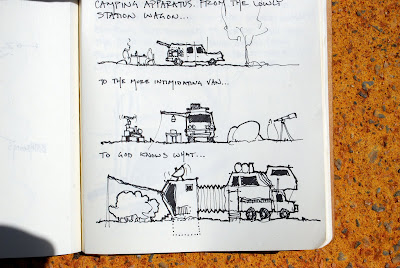 CAMPING APPARATUS. FROM THE LOWLY
STATION WAGON...
TO THE MORE INTIMIDATING VAN...
TO GOD KNOWS WHAT...